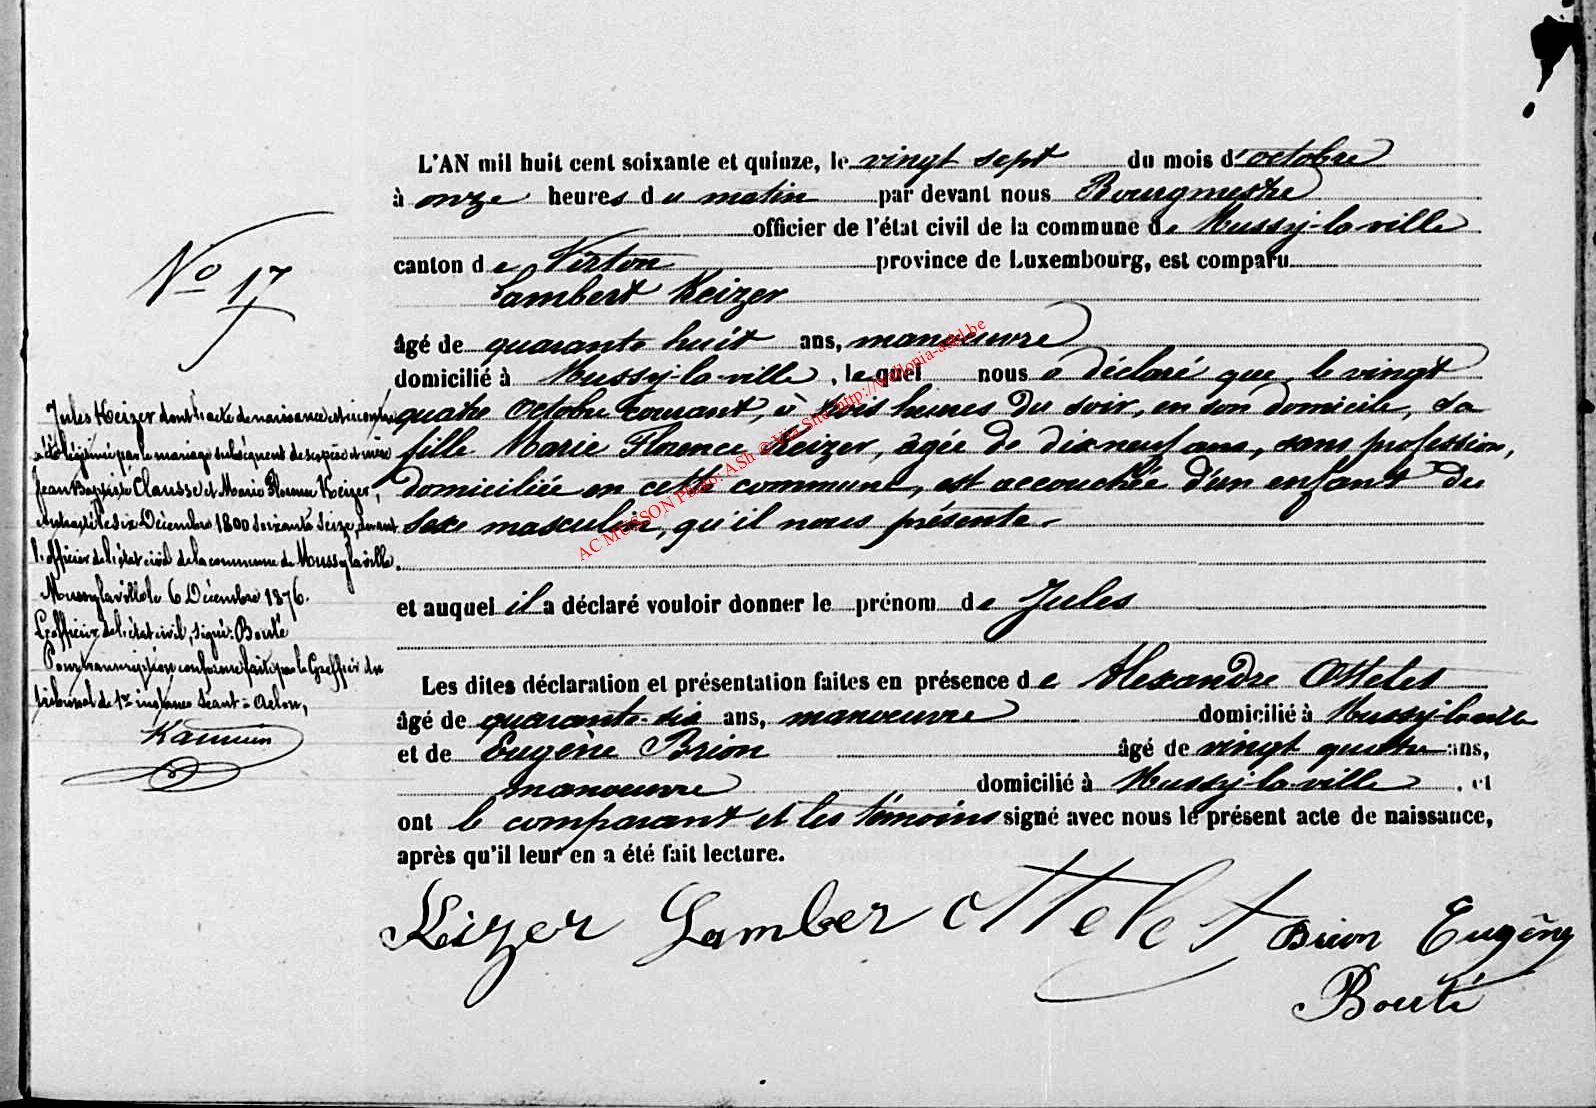 L'AN mil huit cent soixante et quinze, le vingt sept du mois d'octobre
à onze heures du matin par devant nous Bourgmestre
officier de l'état civil de la commune de Mussy-la-ville
canton de Virton province de Luxembourg, est comparu
Lambert Keizer
âgé de quarante huit ans, manoeuvre
domicilié à Mussy-la-ville, lequel nous a déclaré que le vingt
quatre octobre courant, à heures du soir, en son domicile, sa
fille Marie Florence Keizer, âgée de dixneuf ans, sans profession,
domiciliée en cette commune, est accouchée d'un enfant du
sexe masculin, qu'il nous présente.
et auquel il a déclaré vouloir donner le prénom de Jules
Les dites déclaration et présentation faites en présence de Alexandre Ottelet
âgé de quarante-six ans, manoeuvre domicilié à Mussy-la-ville
et de Eugène Brion âgé de vingt quatre ans,
manoeuvre domicilié à Mussy-la-ville, et
ont le comparant et les témoins signé avec nous le présent acte de naissance,
après qu'il leur en a été fait lecture.
Keizer Lamber Ottelet Brion Eugène
Bouté
No 17
Jules Keizer dont l'acte de naissance est ci contre
a été légitimé par le mariage subséquent de ses père et mère
Jean Baptiste Clausse et Marie Florence Keizer,
le six Décembre 1800 soixante seize, devant
l'officier de l'état civil de la commune de Mussy la ville.
Mussy la ville le 6 Décembre 1876.
L'officier de l'état civil, signé: Bouté
Pour transcription conforme faite par le Greffier du
tribunal de 1re instance séant à Arlon,
AC MUSSON Photo: ASh © Via Site http://wallonia-asbl.be